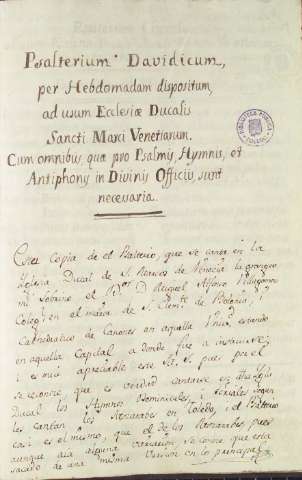 Psalterium Davidicum,
per Hebdomadam dispositum,
ad usum Ecclesiæ Ducalis
Sancti Marci Venetiarum.
Cum omnibus, quæ pro Psalmis, Hymnis, et
Antiphonis in Divinis Officiis sunt
necessaria.
BIBLIOTECA PUBLICA
TOLEDO
Esta Copia de el Psalterio, que se canta en la
Iglesia Ducal de S. Marcos de Venecia la
mi Sobrino el D.or D. Miguel Alfonso
Coleg.l en el maior de S. Clem.te de Bolonia, i
Cathedratico de Canones en aquella estando
en aquella Capital a donde fue a
i es mui apreciable este pues por el
se que es verdad cantarse en
Ducal los Hymnos Dominicales, i
les cantan los Mozarabes en Toledo, i el Psalterio
casi es el mismo, que el de los Mozarabes, pues
aunque aia alguna variacion, se conoce, que esta
sacado de una misma Version en lo principal.